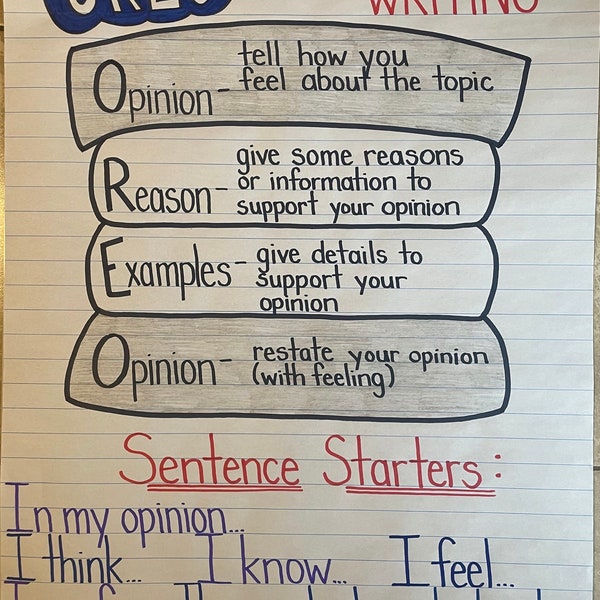 WRITING
Opinion - tell how you
feel about the topic
Reason - give some reasons
or information to
support your opinion
Examples - give details to
support your
opinion
Opinion - restate your opinion
(with feeling)
Sentence Starters:
In my opinion...
I think... I know... I feel...